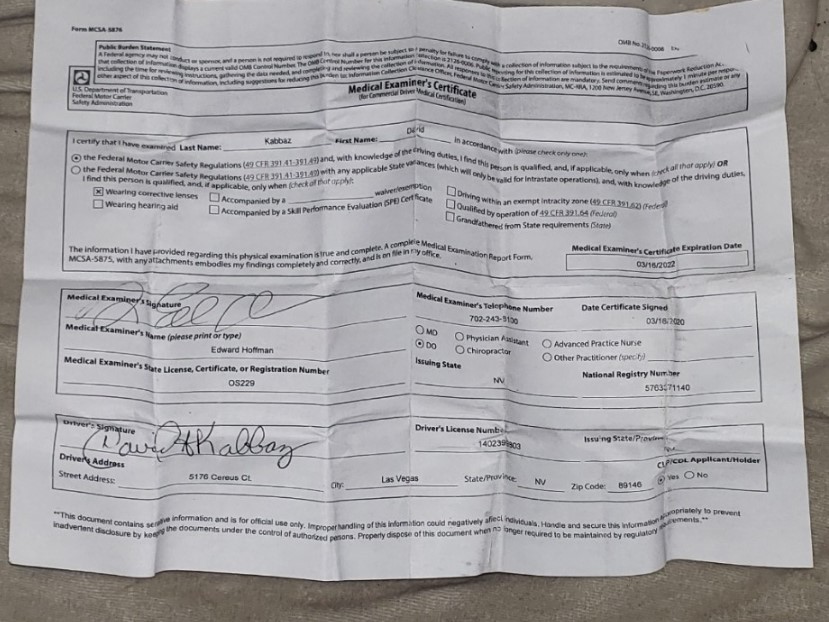 Form MCSA-5876
OMB No. 2126-0006
Public Burden Statement
A Federal agency may not conduct or sponsor, and a person is not required to respond to, nor shall a person be subject to a penalty for failure to comply with a collection of information subject to the requirements of the Paperwork Reduction Act
that collection of information displays a current valid OMB Control Number. The OMB Control Number for this information collection is 2126-0006. Public reporting for this collection of information is estimated to be approximately 1 minute per
including the time for reviewing instructions, gathering the data needed, and completing and reviewing the collection of information. All responses to this collection of information are mandatory. Send comments regarding this burden estimate or any
other aspect of this collection of information, including suggestions for reducing this burden to: Information Collection Clearance Officer, Federal Motor Carrier Safety Administration, MC-RRA, 1200 New Jersey Avenue, SE, Washington, D.C. 20590.
U.S. Department of Transportation
Federal Motor Carrier
Safety Administration
Medical Examiner's Certificate
(for Commercial Driver Medical Certification)
I certify that I have examined Last Name: Kabbaz First Name: David in accordance with (please check only one):
the Federal Motor Carrier Safety Regulations (49 CFR 391.41-391.49) and, with knowledge of the driving duties, I find this person is qualified, and, if applicable, only when (check all that apply) OR
the Federal Motor Carrier Safety Regulations (49 CFR 391.41-391.49) with any applicable State variances (which will only be valid for intrastate operations), and, with knowledge of the driving duties,
I find this person is qualified, and, if applicable, only when (check all that apply):
Wearing corrective lenses Accompanied by a waiver/exemption Driving within an exempt intracity zone (49 CFR 391.62) (Federal)
Wearing hearing aid Accompanied by a Skill Performance Evaluation (SPE) Certificate Qualified by operation of 49 CFR 391.64 (Federal)
Grandfathered from State requirements (State)
The information I have provided regarding this physical examination is true and complete. A complete Medical Examination Report Form,
MCSA-5875, with any attachments embodies my findings completely and correctly, and is on file in my office.
Medical Examiner's Certificate Expiration Date
03/16/2022
Medical Examiner's Signature
Medical Examiner's Telephone Number
702-243-3100
Date Certificate Signed
03/16/2020
Medical Examiner's Name (please print or type)
Edward Hoffman
MD Physician Assistant Advanced Practice Nurse
DO Chiropractor Other Practitioner (specify)
Medical Examiner's State License, Certificate, or Registration Number
OS229
Issuing State
NV
National Registry Number
5763371140
Driver's Signature
David Kabbaz
Driver's License Number
Issuing State/Province
Driver's Address
Street Address: 5176 Cereus Ct. City: Las Vegas State/Province: NV Zip Code: 89146
CLP/CDL Applicant/Holder
Yes No
**This document contains sensitive information and is for official use only. Improper handling of this information could negatively affect individuals. Handle and secure this information appropriately to prevent
inadvertent disclosure by keeping the documents under the control of authorized persons. Properly dispose of this document when no longer required to be maintained by regulatory requirements.**